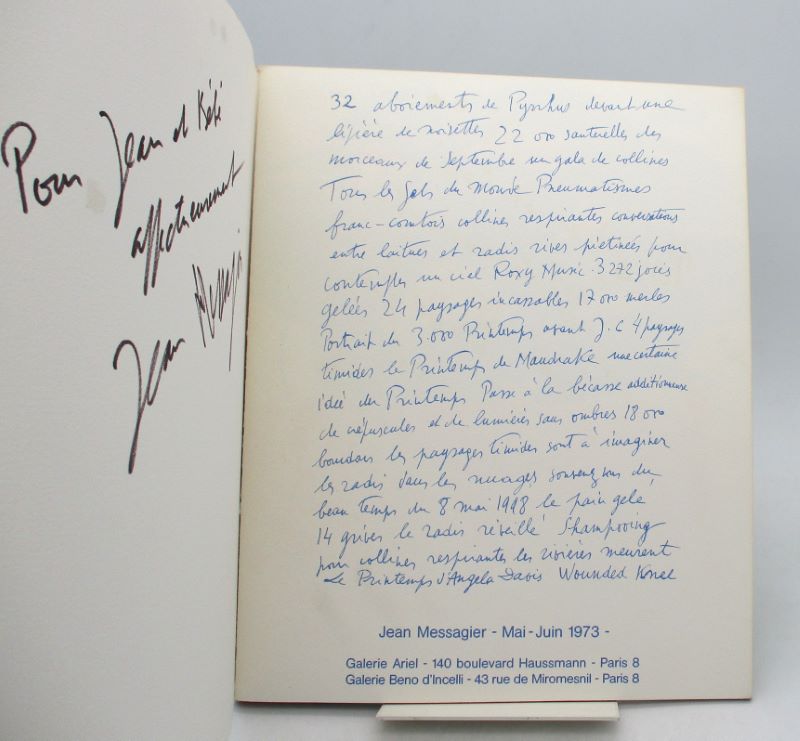 Pour Jean et Kéké
affectueusement
Jean Messagier
32 aboiements de Pyrrhus devant une
lisière de noisettes 22 000 sauterelles des
morceaux de Septembre un gala de collines
Tous les Gels du Monde Pneumatismes
franc-comtois collines respirantes conversations
entre laitues et radis rives piétinées pour
contempler un ciel Roxy Music 3272 joues
gelées 24 paysages incassables 17 000 merles
Portrait du 3.000 Printemps avant J.C 4 paysages
timides le Printemps de Mandrake une certaine
idée du Printemps Passe à la bécasse additionneuse
de crépuscules et de lumières sans ombres 18 000
bourdons les paysages timides sont à imaginer
les radis dans les nuages souvenez vous du
beau temps du 8 mai 1998 le pain gelé
14 grives le radis réveillé Shampooing
pour collines respirantes les rivières meurent
Le Printemps d'Angela Davis Wounded Knee
Jean Messagier - Mai - Juin 1973 -
Galerie Ariel - 140 boulevard Haussmann - Paris 8
Galerie Beno d'Incelli - 43 rue de Miromesnil - Paris 8